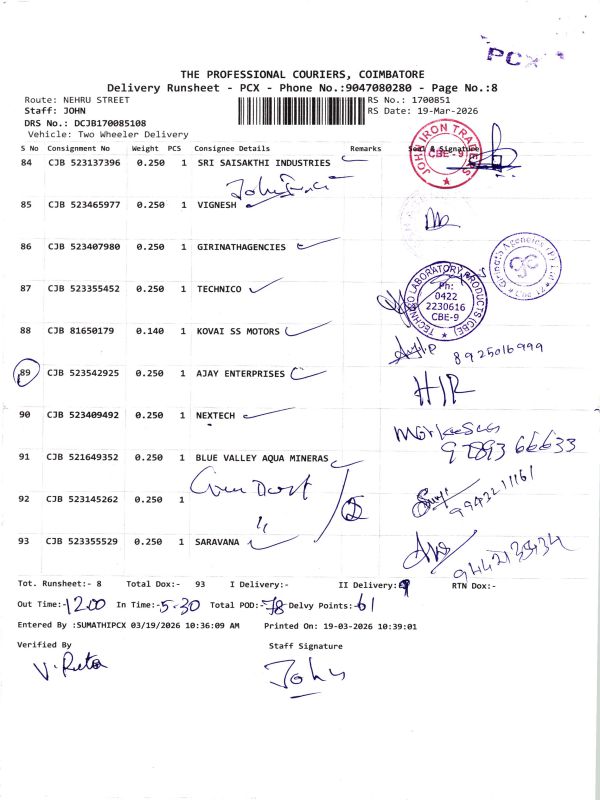 PCX
THE PROFESSIONAL COURIERS, COIMBATORE
Delivery Runsheet - PCX - Phone No.:9047080280 - Page No.:8
Route: NEHRU STREET RS No.: 1700851
Staff: JOHN RS Date: 19-Mar-2026
DRS No.: DCJB170085108
Vehicle: Two Wheeler Delivery
S No Consignment No Weight PCS Consignee Details Remarks Seal & Signature
JOHN IRON TRADERS CBE - 9
84 CJB 523137396 0.250 1 SRI SAISAKTHI INDUSTRIES
John
85 CJB 523465977 0.250 1 VIGNESH
86 CJB 523407980 0.250 1 GIRINATHAGENCIES
Girinath Agencies (P) Ltd
87 CJB 523355452 0.250 1 TECHNICO
TECHNICO LABORATORY PRODUCTS (CBE)
Ph:
0422
2230616
CBE-9
88 CJB 81650179 0.140 1 KOVAI SS MOTORS
8925016999
89 CJB 523542925 0.250 1 AJAY ENTERPRISES
90 CJB 523409492 0.250 1 NEXTECH
66633
91 CJB 521649352 0.250 1 BLUE VALLEY AQUA MINERAS
92 CJB 523145262 0.250 1
9943211161
93 CJB 523355529 0.250 1 SARAVANA
Tot. Runsheet:- 8 Total Dox:- 93 I Delivery:- II Delivery: RTN Dox:-
Out Time:-12.00 In Time:-5-30 Total POD:-78 Delvy Points:-61
Entered By :SUMATHIPCX 03/19/2026 10:36:09 AM Printed On: 19-03-2026 10:39:01
Verified By Staff Signature
John